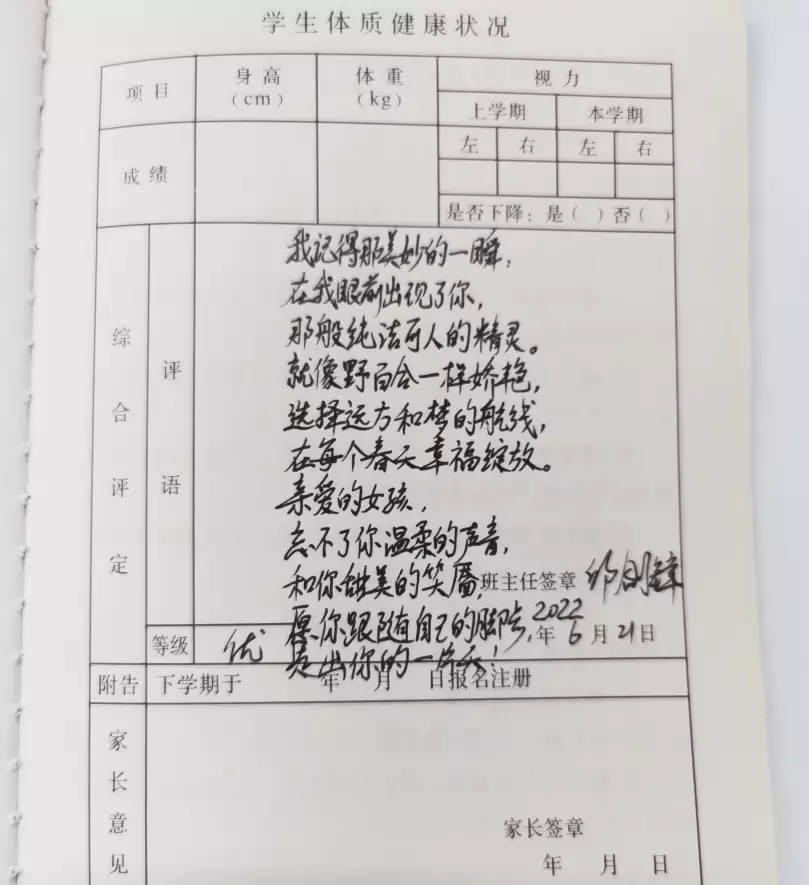 学生体质健康状况
项目 身高(cm) 体重(kg) 视力
上学期 本学期
左 右 左 右
成绩
是否下降：是（ ）否（ ）
综合评定
评语
我记得那美妙的一瞬，
在我眼前出现了你，
那般纯洁可人的精灵。
就像野百合一样娇艳，
选择远方和梦的航线，
在每个春天幸福绽放。
亲爱的女孩，
忘不了你温柔的声音，
和你甜美的笑靥，
班主任签章
愿你跟随自己的脚步，
2022年6月21日
走出你的一片天！
等级 优
附告 下学期于 年 月 日报名注册
家长意见
家长签章
年 月 日